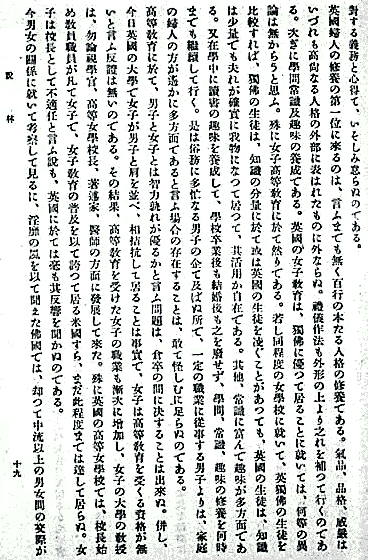 對する義務と心得て、いそしみ怠らぬのである。
英國婦人の修養の第一位に來るのは、言ふまでも無く百行の本たる人格の修養である。氣品、品格、威嚴は
いづれも高尙なる人格の外部に表はれたものに外ならぬ。禮儀作法も外形の上より之れを補つて行くのであ
る。次ぎに學問常識及趣味の養成である。英國の女子敎育は、獨佛に優つて居ることに就いては、何等の異
論は無からうと思ふ。殊に女子高等敎育に於て然りである。若し同程度の女學校に就いて、英獨佛の生徒を
比較すれば、獨佛の生徒は、知識の分量に於て或は英國の生徒を凌ぐことがあつても、英國の生徒は、知識
は少量でも夫れが確實に我物になつて居つて、其活用が自在である。其他、常識に富んで趣味が多方面であ
る。又在學中に讀書の趣味を養成して、學校卒業後も結婚後も之を廢せず、學問、常識、趣味の修養を何時
までも繼續して行く。是は俗務に多忙なる男子の企て及ばぬ所で、一定の職業に從事する男子よりは、家庭
の婦人の方が遙かに多方面であると言ふ場合の存在することは、敢て怪しむに足らぬのである。
高等敎育に於て、男子と女子とは智力孰れが優るかと言ふ問題は、倉卒の間に決することは出來ぬ。併し、
今日英國の大學で女子が男子と肩を並べ、相拮抗して居ることは事實で、女子は高等敎育を受くる資格が無
いと言ふ反證は無いのである。その結果、高等敎育を受けた女子の職業も漸次に增加し、女子の大學の敎授
は、勿論視學官、高等女學校長、著述家、醫師の方面に發展して來た。殊に英國の高等女學校では、校長始
め敎員職員が凡て女子で、女子敎育の普及を以て誇つて居る米國すら、まだ此程度までは達して居らぬ。女
子は校長として不適任と言ふ說も、英國に於ては毫も其反響を聞かぬのである。
今男女の關係に就いて考察して見るに、淫靡の風を以て聞えた佛國では、却つて中流以上の男女間の交際が
說林
十九